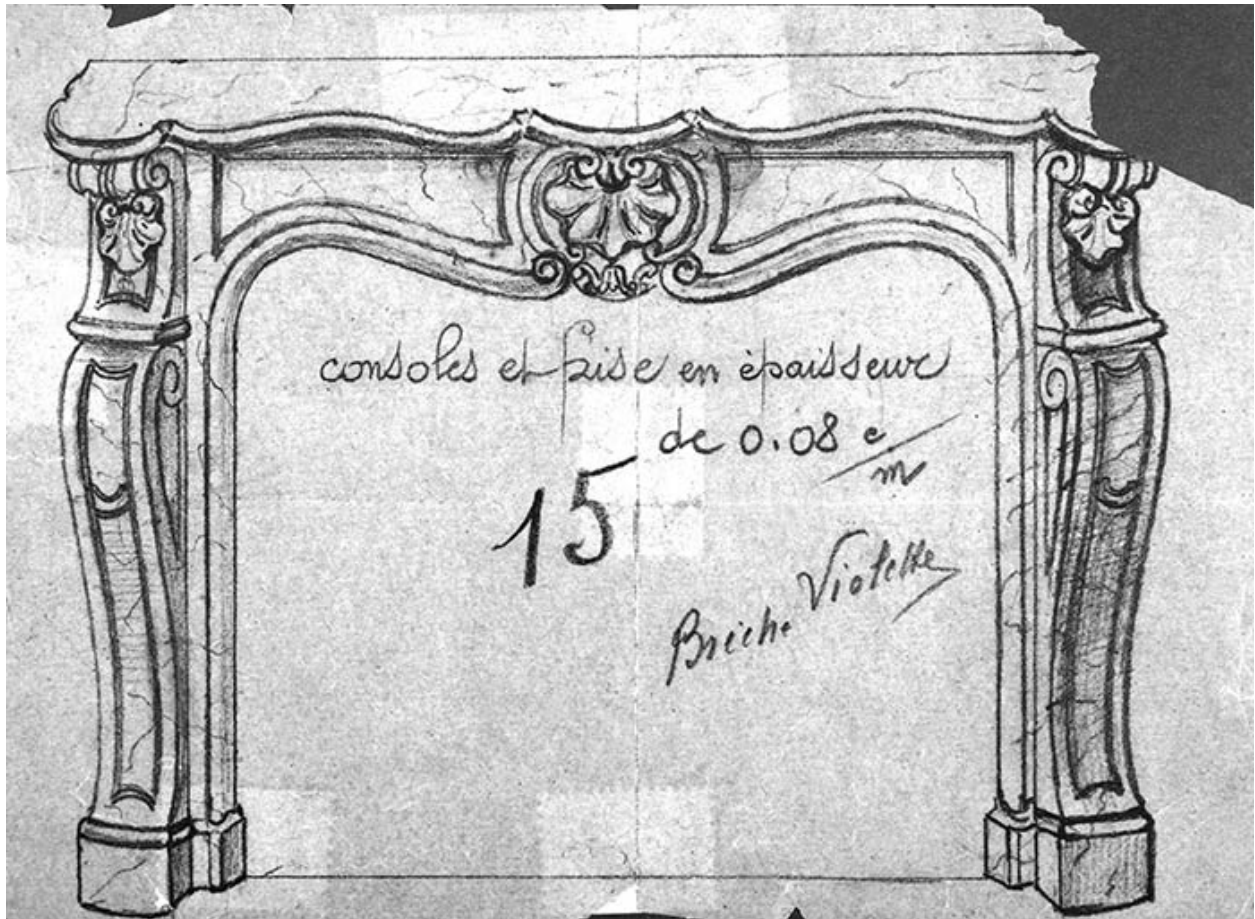 consoles et frise en èpaisseur
de 0.08 c/m
15
Brèche Violette